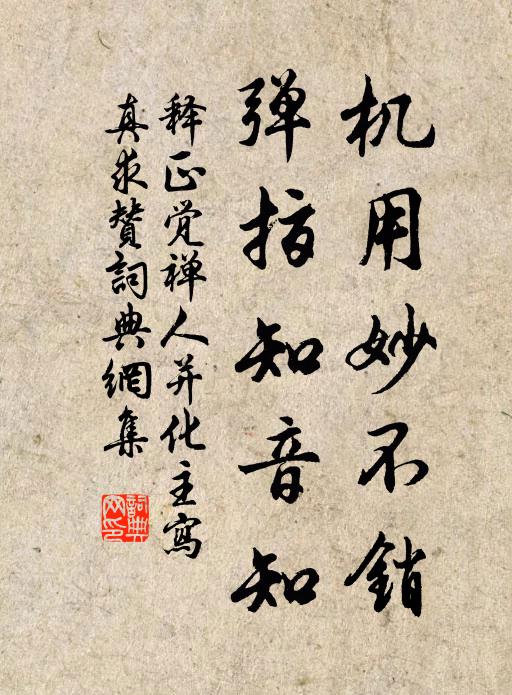 机用妙不销
弹指知音知
释正觉禅人并化主寫
真求赞詞典網集
詞典網印